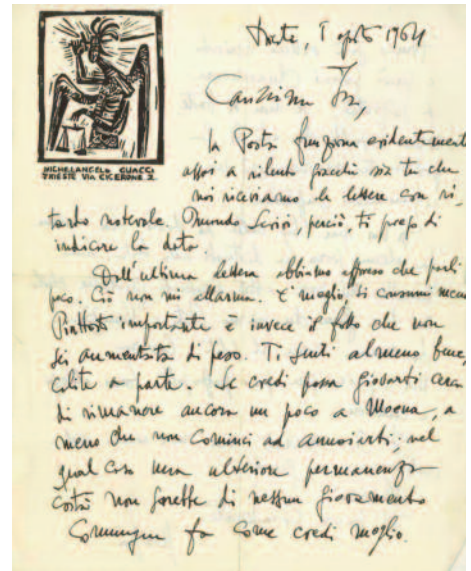 MICHELANGELO GUACCI
TRIESTE VIA CICERONE 2
Trieste, 1 agosto 1964
Carissima
la Posta funziona evidentemente
assai a rilento giacchè sia tu che
noi riceviamo le lettere con ri,
tardo notevole. Quando scrivi, perciò, ti prego di
indicare la data
Dall'ultima lettera abbiamo appreso che parli
poco. Ciò non mi allarma. E' meglio, si consuma meno
Piuttosto importante è invece il fatto che non
sei aumentata di peso. Ti senti almeno bene,
colite a parte. Se credi possa giovarti cerca
di rimanere ancora un poco a Moena, a
meno che non cominci ad annoiarti; nel
qual caso una ulteriore permanenza
costà non sarebbe di nessun giovamento
Comunque fa come credi meglio.